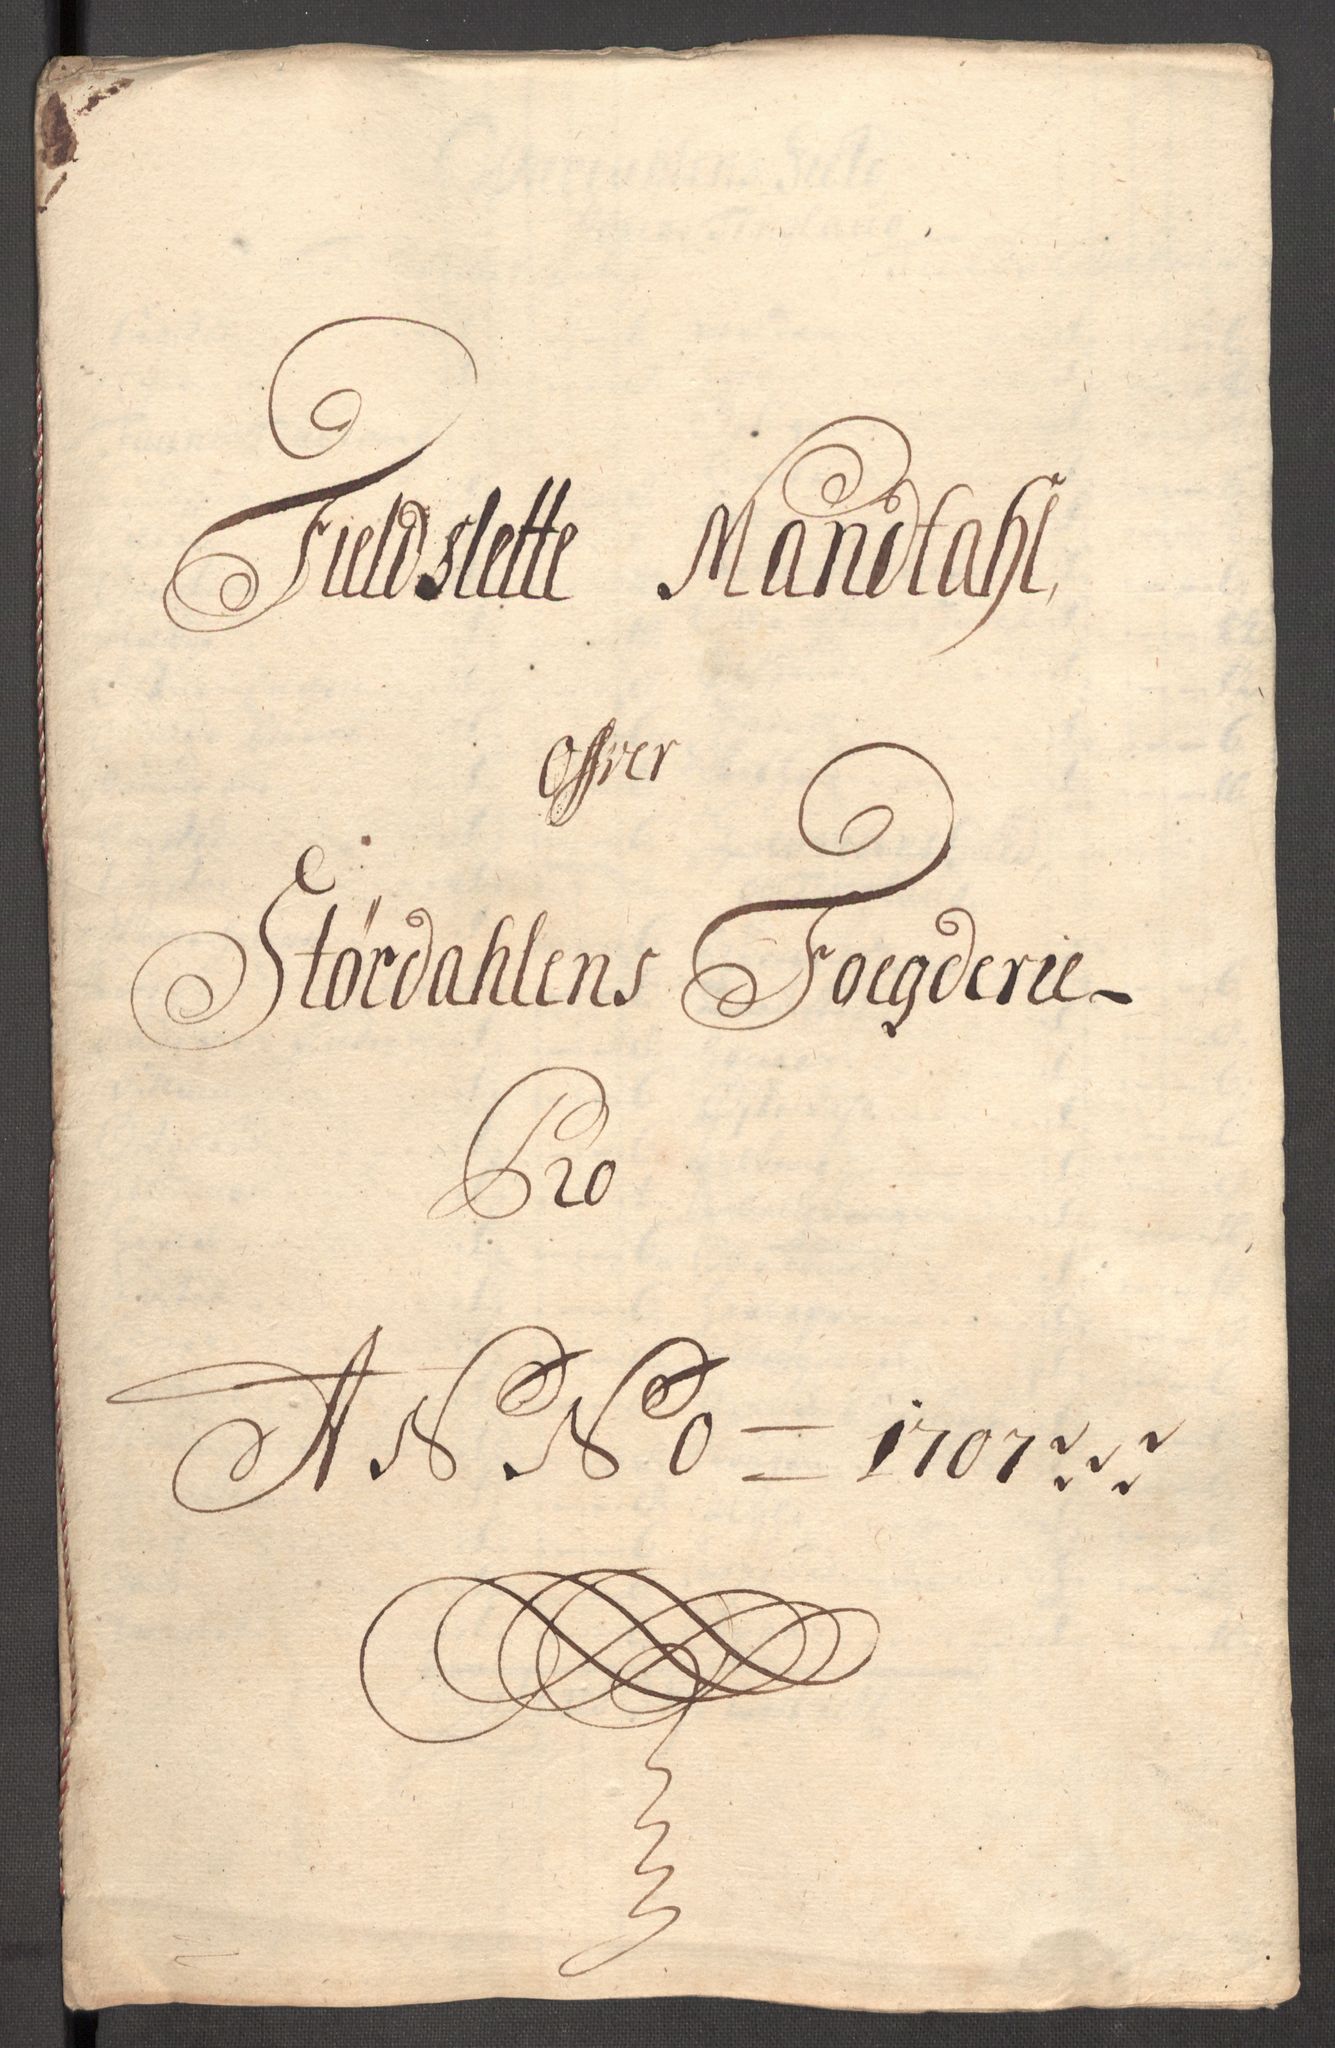 Fieldslette Mandtahl,
offver
Størdahlens Foegderie
Pro
ANNO = 1707